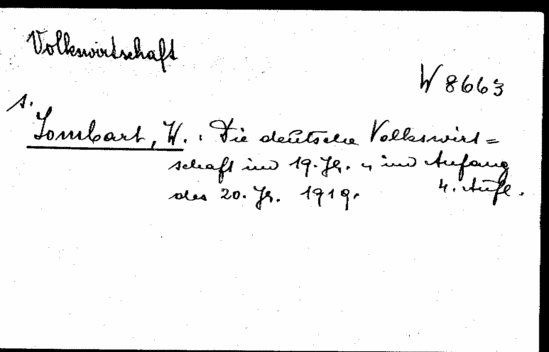 Volkswirtschaft
W 8663
s.
Sombart, W.: Die deutsche Volkswirt=
schaft im 19. Jh. u. im Anfang
des 20. Jh. 1919. 4. Aufl.